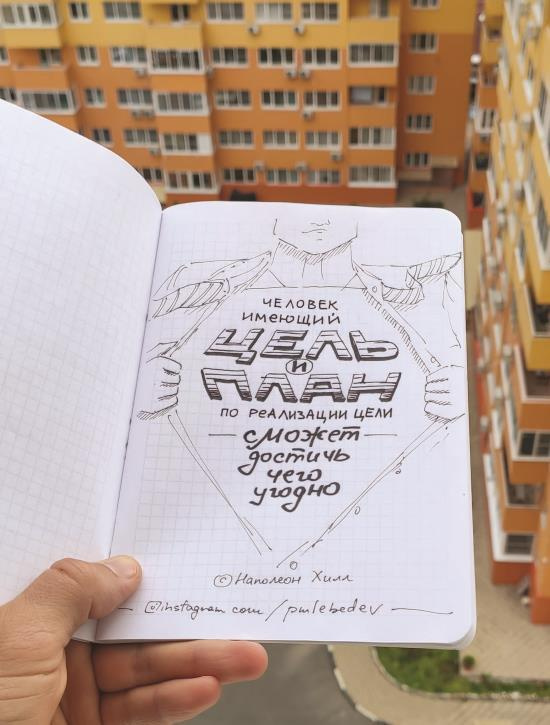 ЧЕЛОВЕК
ИМЕЮЩИЙ
ЦЕЛЬ
И
ПЛАН
ПО РЕАЛИЗАЦИИ ЦЕЛИ
сможет
достичь
чего
угодно
© Наполеон Хилл
@instagram.com/pmlebedev